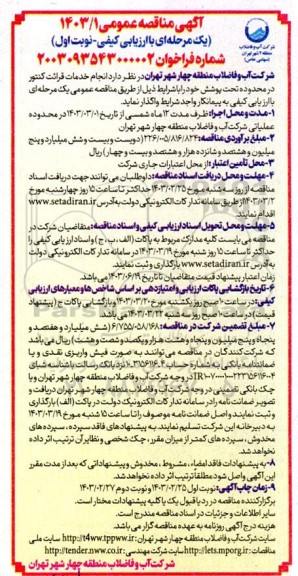 آگهی مناقصه عمومی ۱۴۰۳/۱
(یک مرحله‌ای با ارزیابی کیفی-نوبت اول)
شماره فراخوان ۲۰۰۳۰۹۳۵۴۳۰۰۰۰۰۲
شرکت آب و فاضلاب
منطقه ۴ شهر تهران
(سهامی خاص)
شرکت آب و فاضلاب منطقه چهار شهر تهران در نظر دارد انجام خدمات قرائت کنتور
در محدوده تحت پوشش خود را با شرایط ذیل از طریق مناقصه عمومی یک مرحله‌ای
با ارزیابی کیفی به پیمانکار واجد شرایط واگذار نماید.
۱-مدت و محل اجرا: ظرف مدت ۱۲ ماه شمسی از تاریخ ۱۴۰۳/۰۳/۰۱ در محدوده
عملیاتی شرکت آب و فاضلاب منطقه چهار شهر تهران
۲-مبلغ برآوردی مناقصه: ۲۲۶/۰۰۵/۸۱۶/۸۲۴ (دویست و بیست و شش میلیارد و پنج
میلیون و هشتصد و شانزده هزار و هشتصد و بیست و چهار) ریال
۳-محل تأمین اعتبار: از محل اعتبارات جاری شرکت
۴-مهلت و محل دریافت اسناد مناقصه: داوطلبان می‌توانند جهت دریافت اسناد
مناقصه از روز سه‌شنبه مورخ ۱۴۰۳/۰۲/۲۵ حداکثر تا ساعت ۱۵ روز چهارشنبه مورخ
۱۴۰۳/۰۳/۰۲ از طریق سامانه تدارکات الکترونیکی دولت به آدرس www.setadiran.ir
اقدام نمایند.
۵-مهلت و محل تحویل اسناد ارزیابی کیفی و اسناد مناقصه: متقاضیان شرکت در
مناقصه می‌بایست کلیه مدارک مربوط به پاکات (الف، ب، ج) و اسناد ارزیابی کیفی را
حداکثر تا ساعت ۱۵ روز شنبه مورخ ۱۴۰۳/۰۳/۱۹ در سامانه تدارکات الکترونیکی دولت
به آدرس www.setadiran.ir بارگذاری و ثبت نمایند.
زمان اعتبار پیشنهاد قیمت متقاضیان تا تاریخ ۱۴۰۳/۰۶/۱۹ می‌باشد.
۶-تاریخ بازگشایی پاکات ارزیابی و امتیازدهی بر اساس شاخص‌ها و معیارهای ارزیابی
کیفی: در ساعت ۱۰ صبح روز یکشنبه مورخ ۱۴۰۳/۰۳/۲۰ و بازگشایی پاکات ج (پیشنهاد
قیمت) در ساعت ۱۰ صبح روز سه‌شنبه مورخ ۱۴۰۳/۰۳/۲۲ می‌باشد.
۷-مبلغ تضمین شرکت در مناقصه: ۶/۷۵۵/۰۵۸/۱۶۸ (شش میلیارد و هفتصد و
پنجاه و پنج میلیون و پنجاه و هشت هزار و یکصد و شصت و هشت) ریال می‌باشد
که شرکت‌کنندگان در مناقصه می‌توانند به صورت فیش واریزی نقدی و یا
در وجه شرکت آب و فاضلاب منطقه چهار شهر تهران و یا
به دبیرخانه این شرکت تسلیم نمایند. به پیشنهادهای فاقد سپرده، سپرده‌های
مخدوش، سپرده‌های کمتر از میزان مقرر، چک شخصی و نظایر آن ترتیب اثر داده
نخواهد شد.
۸-به پیشنهادات فاقد امضاء، مشروط، مخدوش و پیشنهاداتی که بعد از مدت مقرر
این آگهی واصل شود مطلقاً ترتیب اثر داده نخواهد شد.
۹-زمان چاپ آگهی: نوبت اول ۱۴۰۳/۰۲/۲۵ و نوبت دوم ۱۴۰۳/۰۲/۲۷
برگزارکننده مناقصه در رد یا قبول یک یا کلیه پیشنهادات مختار است.
سایر اطلاعات و جزئیات در اسناد مناقصه مندرج است.
هزینه درج آگهی روزنامه به عهده مناقصه‌گزار می‌باشد.
سایت شرکت آب و فاضلاب منطقه چهار شهر تهران: http://t4ww.tpww.ir سایت ملی
مناقصات: http://iets.mporg.ir سایت شرکت مهندسی: http://tender.nww.co.ir
شرکت آب و فاضلاب منطقه چهار شهر تهران